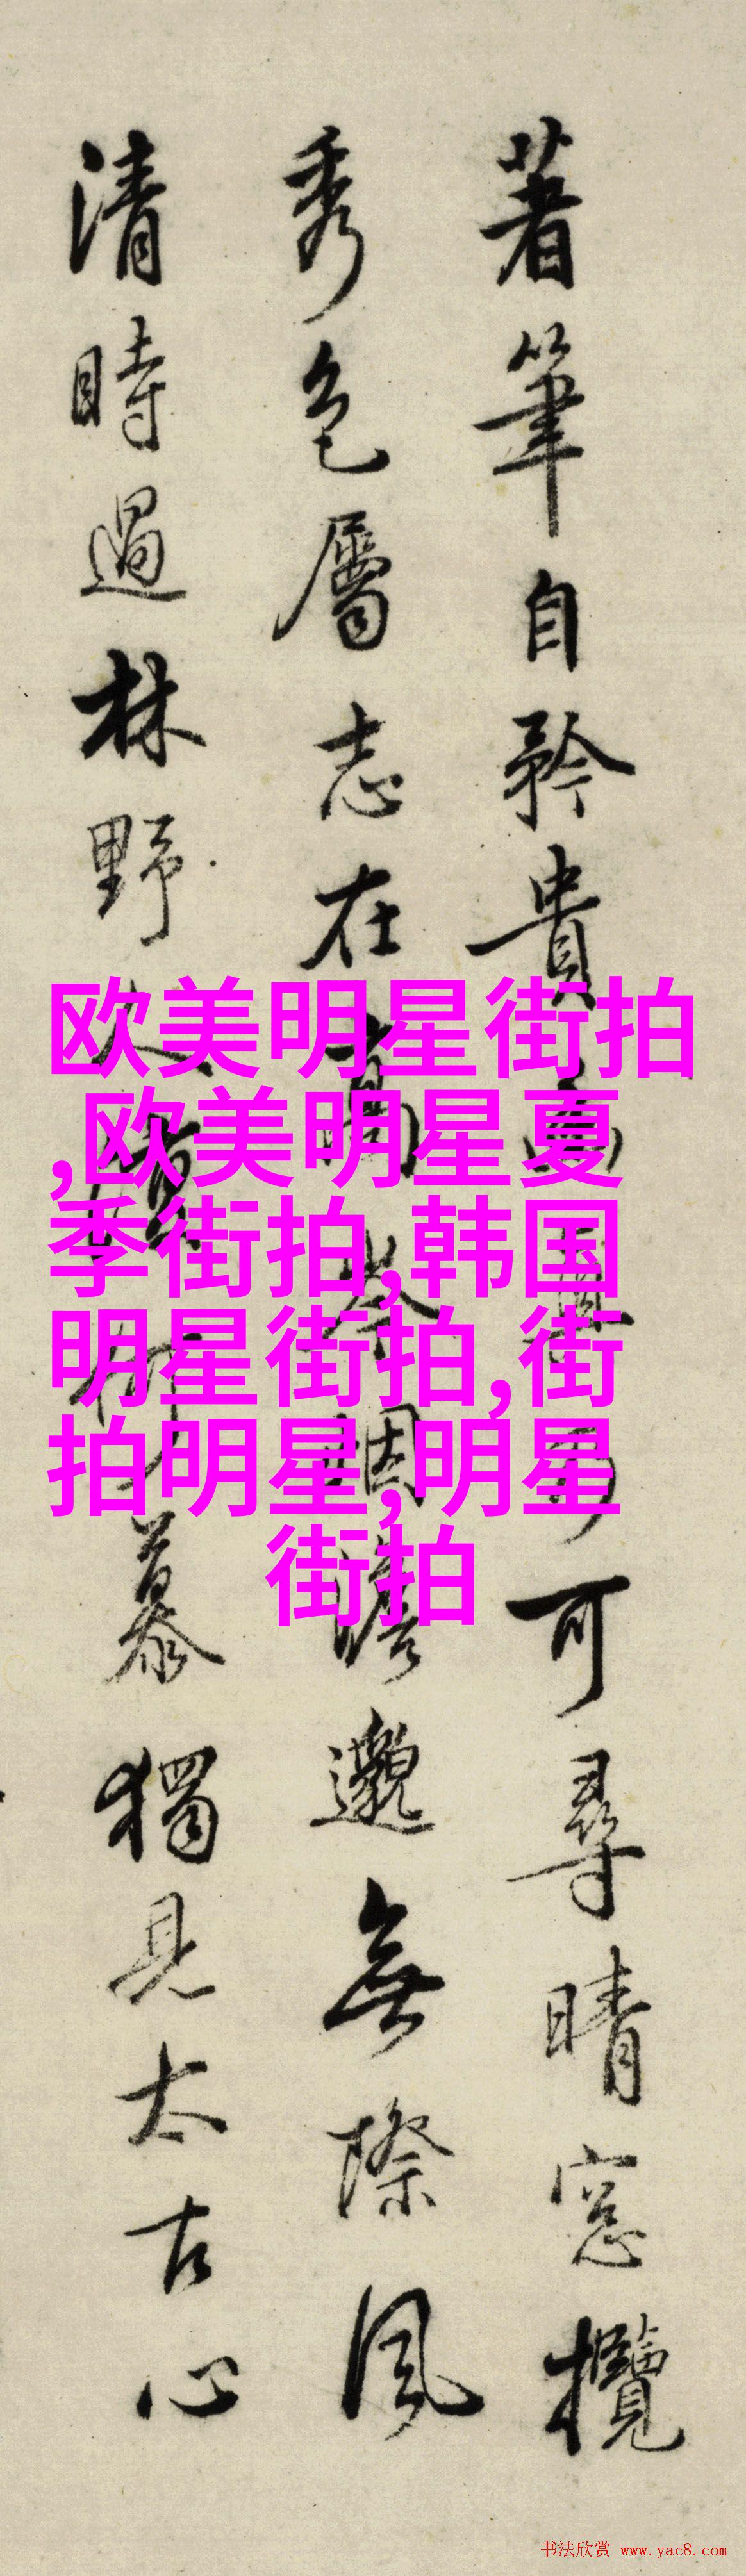 著筆自矜貴可尋晴窓攬
秀色屬志在高岑澹邈無際風
清時過林野慕獨見太古心
欧美明星街拍
,欧美明星夏
季街拍,韩国
明星街拍,街
拍明星,明星
街拍
书法欣赏 www.yac8.com